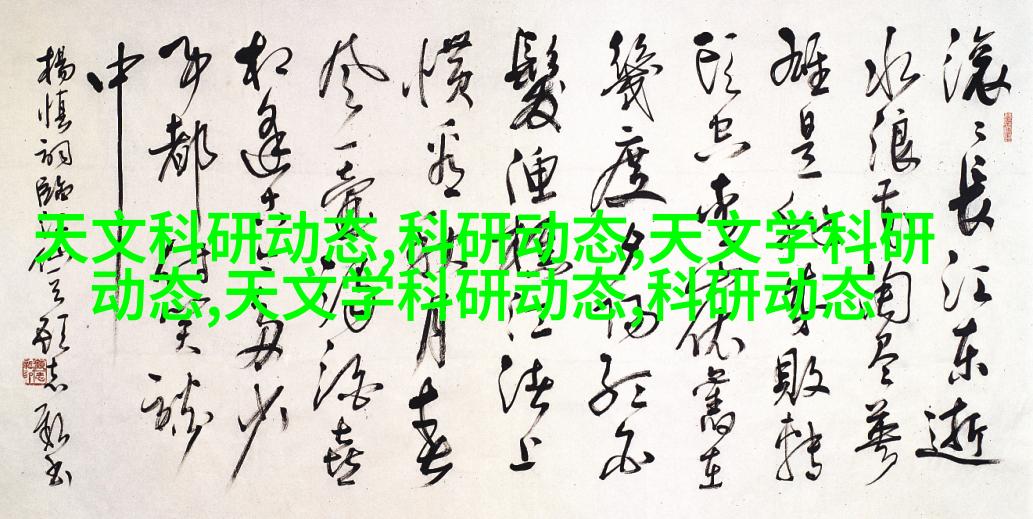 天文科研动态,科研动态,天文学科研
动态,天文学科研动态,科研动态
滚〻長江东逝
水浪花淘尽英
雄是非成敗轉
头空青山依舊在
幾度夕阳红白
髮漁樵江渚上
慣看秋月春
风一壺濁酒喜
相逢古今多少
事都付笑談
中
楊慎詞臨江仙